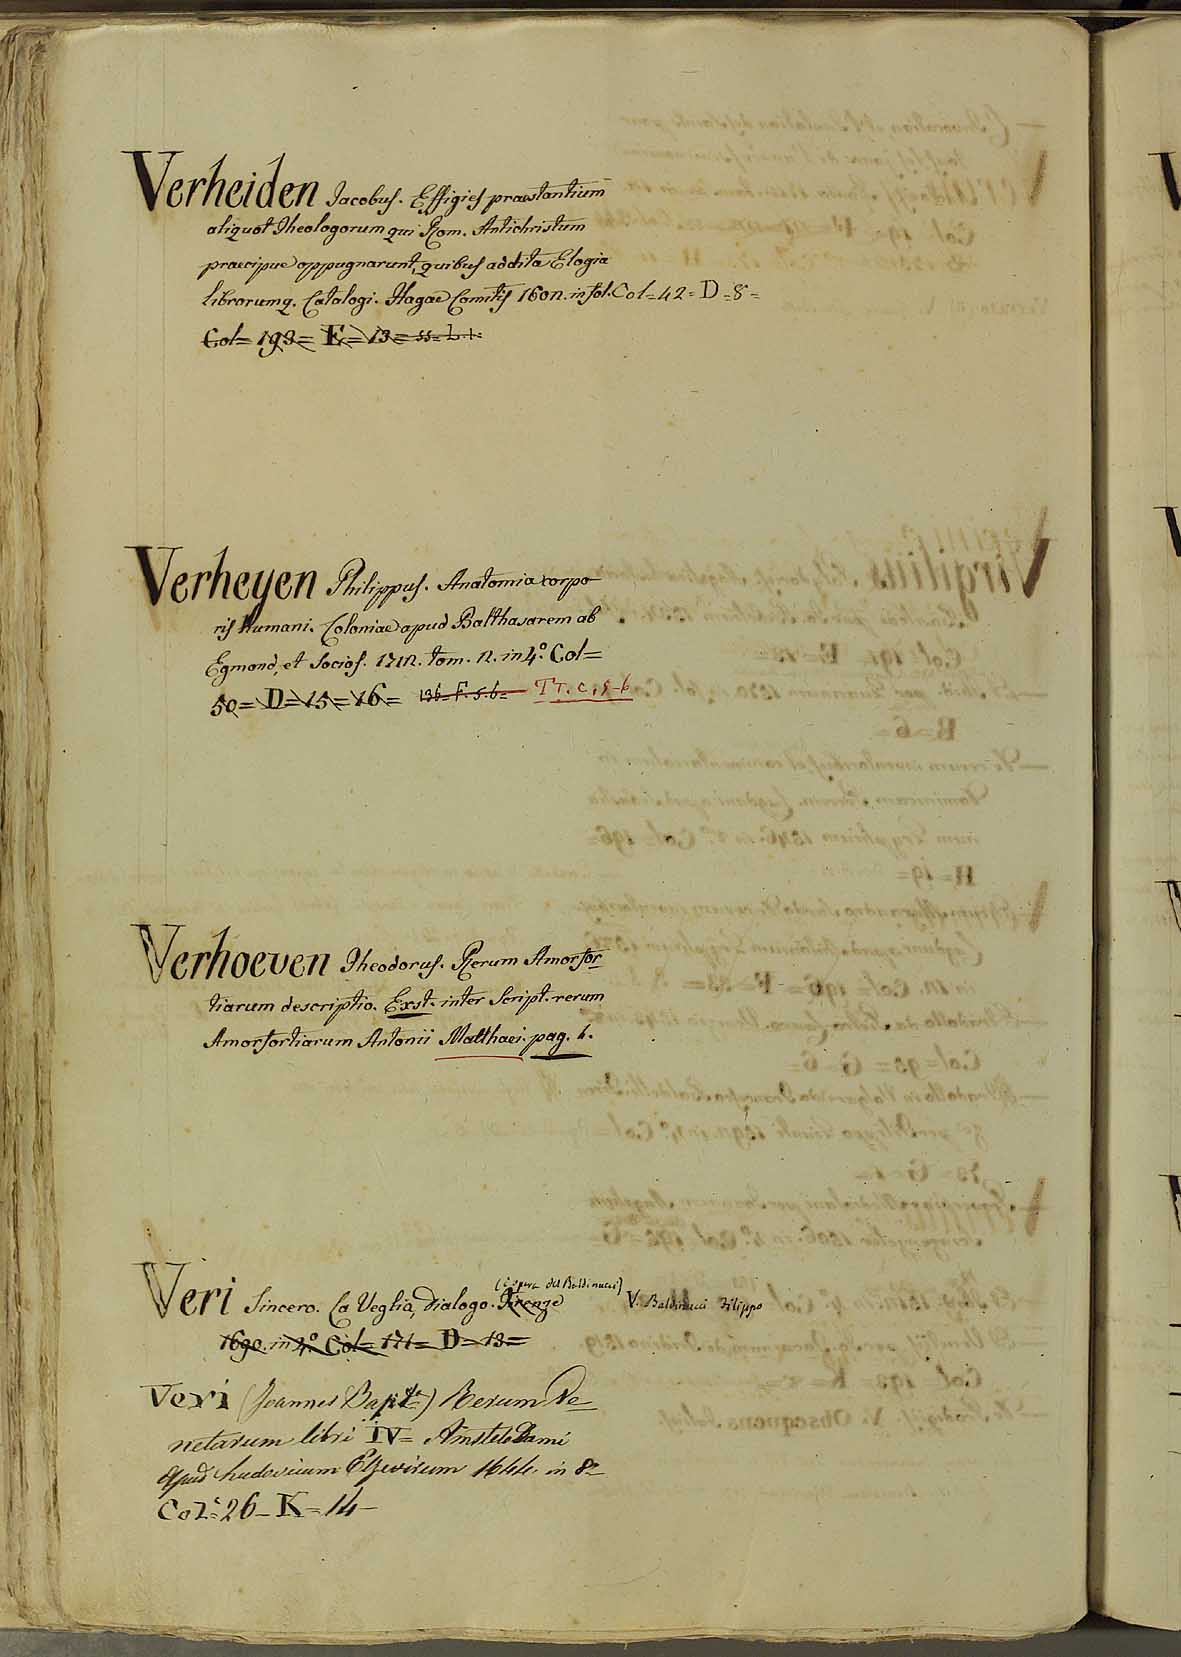 Verheiden Jacobus. Effigies praestantium
aliquot Theologorum qui Rom. Antichristum
praecipue oppugnarunt, quibus addita Elogia
librorumq. Catalogi. Hagae Comitis 1602. in fol. Col=42=D=8=
Col=193=E=13=
Verheyen Philippus. Anatomia corpo
ris Humani. Coloniae apud Balthasarem ab
Egmond, et Socios. 1712. tom. 2. in 4.º Col=
50=D=15=16= 136=F.5.6= TT.C.5-6
Verhoeven Theodorus. Rerum Amorfor-
tiarum descriptio. Exst. inter Script. rerum
Amorfortiarum Antonii Matthaei. pag. 1.
(è opera del Baldinucci)
Veri Sincero. La Veglia, Dialogo. Firenze V. Baldinucci Filippo
1690. in 4.º Col=171=D=13=
Veri (Joannes Bapt.) Rerum Ve=
netarum libri IV= Amstelodami
Apud Ludovicum Elzevirium 1644. in 8º
Col=26-K=14-